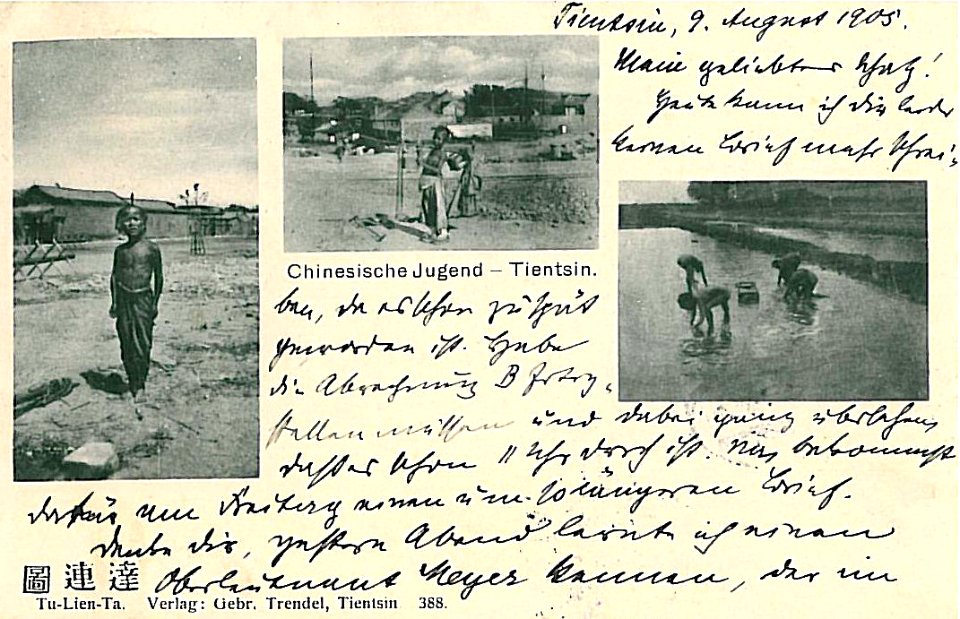 Tientsin, 9. August 1905.
Mein geliebter Schatz!
Heute kann ich Dir leider
keinen Brief mehr schrei-
Chinesische Jugend – Tientsin.
ben, da es schon zu spät
geworden ist. Habe
die Abrechnung B fertig-
stellen müssen und dabei ganz übersehen,
daß es schon 11 Uhr durch ist. Du bekommst
dafür am Freitag einen um so längeren Brief.
Denke Dir, gestern Abend lernte ich einen
Oberleutnant Meyer kennen, der im
圖 連 達
Tu-Lien-Ta. Verlag: Gebr. Trendel, Tientsin 388.